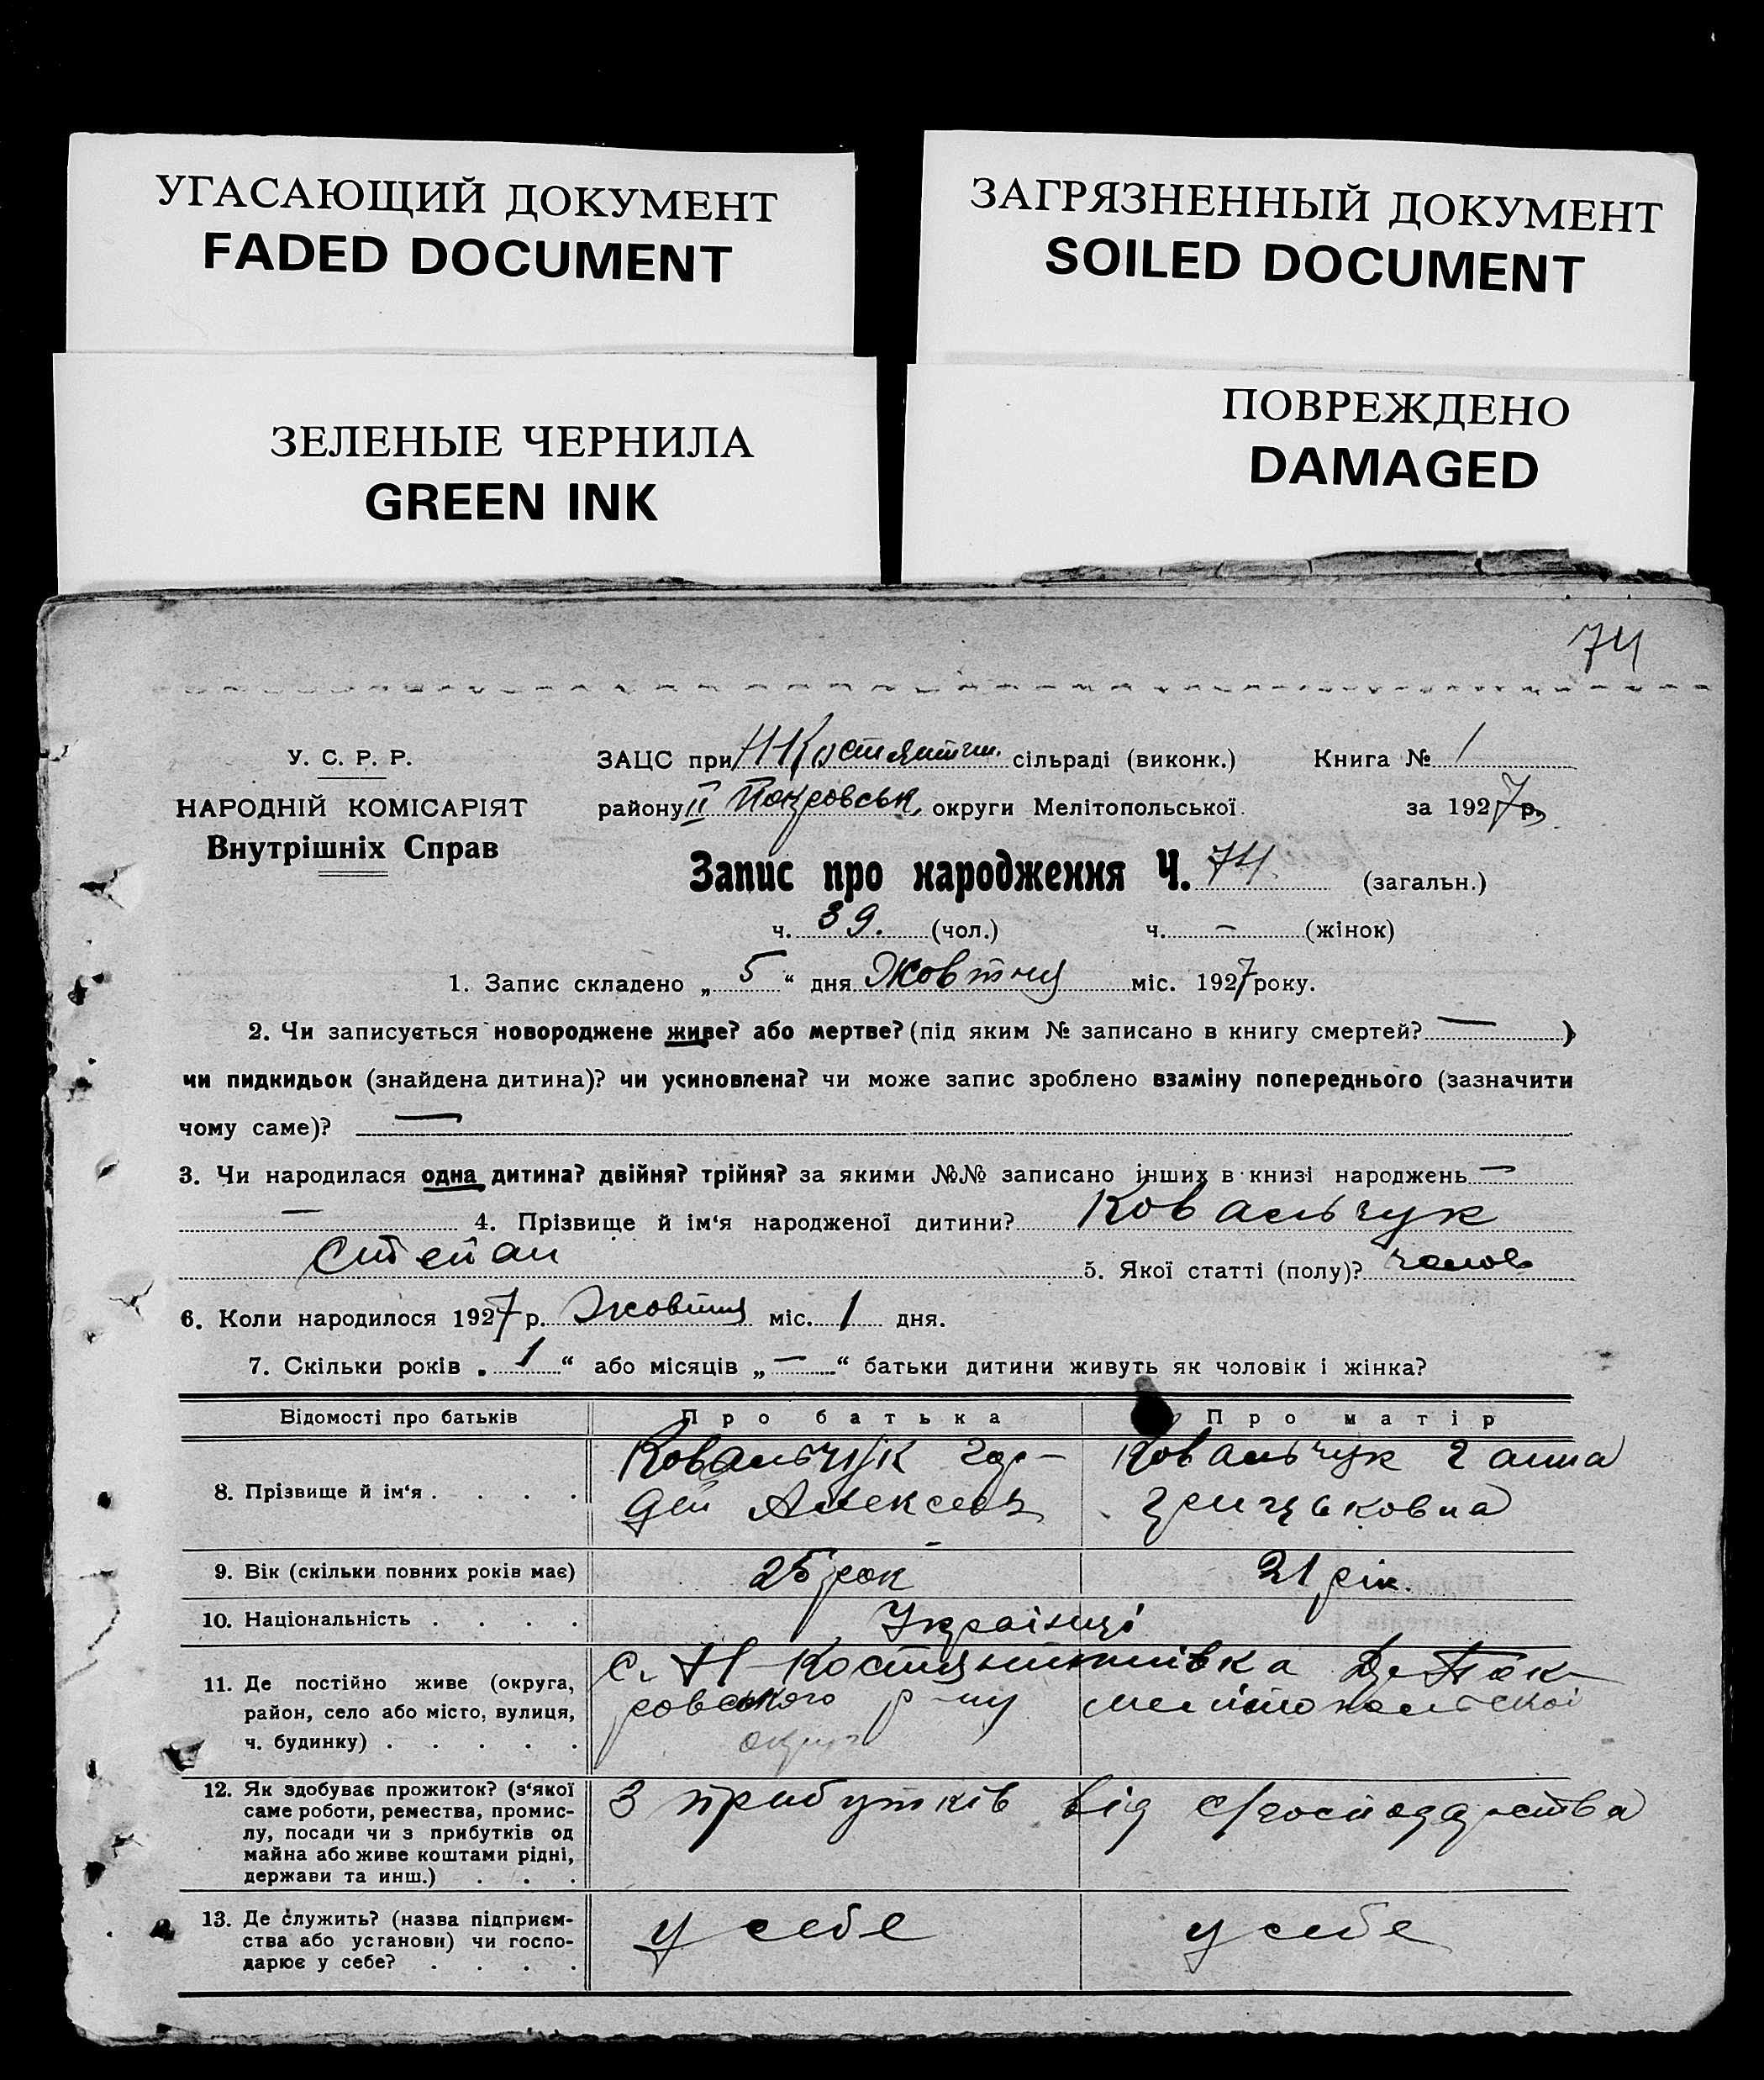 УГАСАЮЩИЙ ДОКУМЕНТ
FADED DOCUMENT
ЗАГРЯЗНЕННЫЙ ДОКУМЕНТ
SOILED DOCUMENT
ЗЕЛЕНЫЕ ЧЕРНИЛА
GREEN INK
ПОВРЕЖДЕНО
DAMAGED
74
У. С. Р. Р.
НАРОДНІЙ КОМІСАРІЯТ
Внутрішніх Справ
ЗАЦС при сільраді (виконк.) Книга № 1
району ІІ Покровськ. округи Мелітопольської. за 1927 р.
Запис про народження Ч. 74 (загальн.)
ч. 39. (чол.) ч. — (жінок)
1. Запис складено „ 5 “ дня Жовтня міс. 1927 року.
2. Чи записується новороджене живе? або мертве? (під яким № записано в книгу смертей? — )
чи пидкидьок (знайдена дитина)? чи усиновлена? чи може запис зроблено взаміну попереднього (зазначити
чому саме)? —
3. Чи народилася одна дитина? двійня? трійня? за якими №№ записано інших в книзі народжень —
— 4. Прізвище й ім‘я народженої дитини? Ковальчук
Степан 5. Якої статті (полу)? чолов
6. Коли народилося 1927 р. Жовтня міс. 1 дня.
7. Скільки років „ 1 “ або місяців „ — “ батьки дитини живуть як чоловік і жінка?
Відомості про батьків Про батька Про матір
8. Прізвище й ім‘я . . . . Ковальчук Гор- Ковальчук Ганна
дей Алексеев Грицьковна
9. Вік (скільки повних років має) 25 рок 21 рік.
10. Національність . . . . Українці
11. Де постійно живе (округа,
район, село або місто, вулиця,
ч. будинку) . . . . .
с. Н-Костянтинівка Пок-
ровського р-ну Мелітопольскої
округ
12. Як здобуває прожиток? (з‘якої
саме роботи, ремества, промис-
лу, посади чи з прибутків од
майна або живе коштами рідні,
держави та инш.) . . .
З прибутків від с/господарства
13. Де служить? (назва підприєм-
ства або установи) чи госпо-
дарює у себе? . . . .
у себе у себе